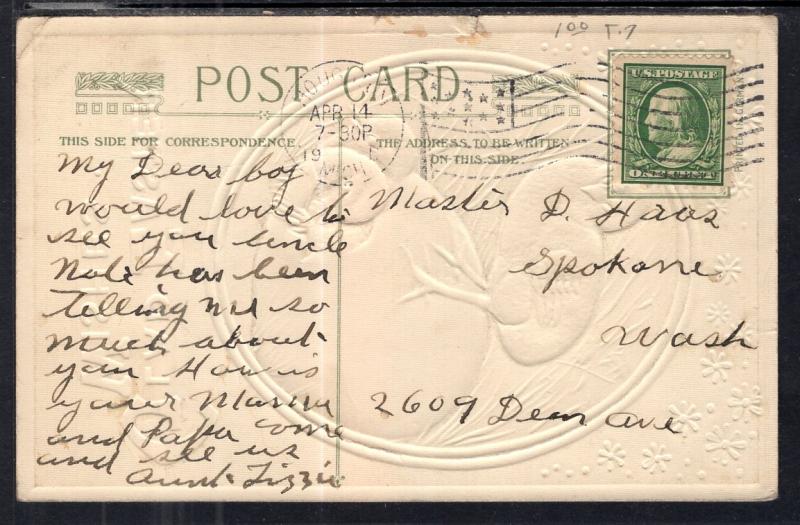 100 T.7
POST CARD
THIS SIDE FOR CORRESPONDENCE.
THE ADDRESS TO BE WRITTEN
ON THIS SIDE.
APR 14
7-30P
19
MICH.
U.S. POSTAGE
My Dear boy
would love to
see you uncle
Nate has been
telling me so
much about
you How is
your Mamma
and Papa come
and see us
Aunt Lizzie
Master D. Haas
Spokane
Wash
2609 Dean ave